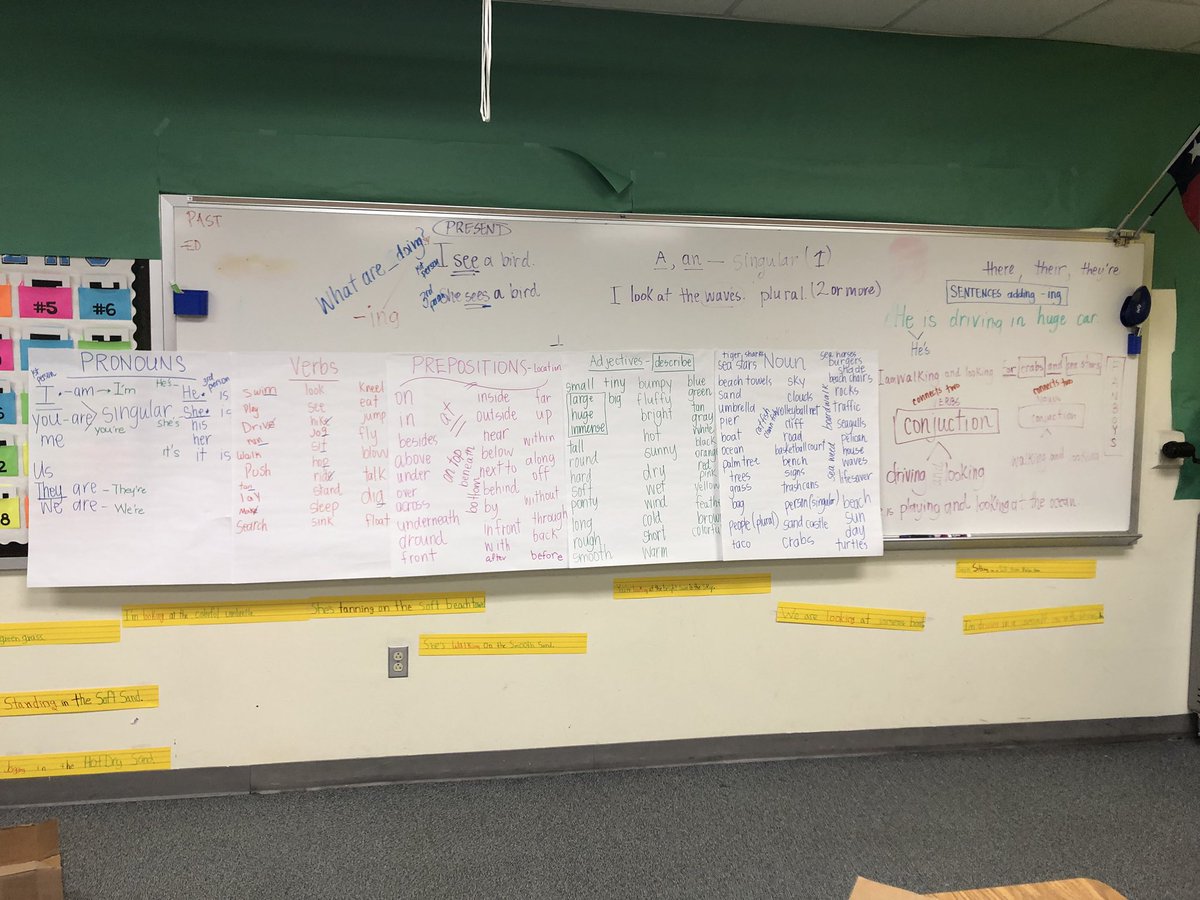 PAST
-ED
What are_doing?
-ing
PRESENT
1st person
I see a bird.
3rd person
She sees a bird.
A, an — singular (1)
I look at the waves. plural. (2 or more)
there, their, they're
SENTENCES adding -ing
He is driving in huge car.
He's
I am walking and looking
connects two
conjuction
driving and looking
is playing and looking at the ocean
or crabs and sea stars
connects two
conjuction
walking and looking
FANBOYS
#5
#6
PRONOUNS
1st person
I. -am → I'm
you-are singular
you're
me
Us
They are - They're
We are - We're
He's -
3rd person
He. is
she's
She. is
his
her
it's it is
Verbs
swim look Kneel
Play see eat
Drive hike jump
run jog fly
Walk sit blow
Push hop
ride talk
tan stand
lay dig
Make sleep
search sink float
PREPOSITIONS-location
on inside far
in outside up
besides near within
above below along
under next to off
over behind without
across by through
underneath in front back
around with before
front after
at
on top
beneath
bottom
Adjectives - describe
small tiny bumpy blue
large big fluffy green
huge bright tan
immense hot gray
tall sunny white
round dry black
hard wet orange
soft wind red
cold pink
long short yellow
rough warm brown
smooth
Noun
tiger sharks
sea stars
sea horses
burgers
shade
beach towels sky beach chairs
sand clouds rocks
umbrella volleyball net traffic
pier cliff seagulls
boat road pelican
ocean basketball court house
palm tree bench waves
trees signs lifesaver
grass trash cans
bag person (singular) beach
people (plural) sand castle sun
taco crabs day
turtles
boardwalk
sea weed
green grass.
I'm looking at the colorful umbrella
She's tanning on the soft beach towel
She's Walking on the Smooth Sand.
You're looking at the bright sun in the sky.
We are looking at
Standing in the Soft Sand.
Joging in the Hot Dry Sand